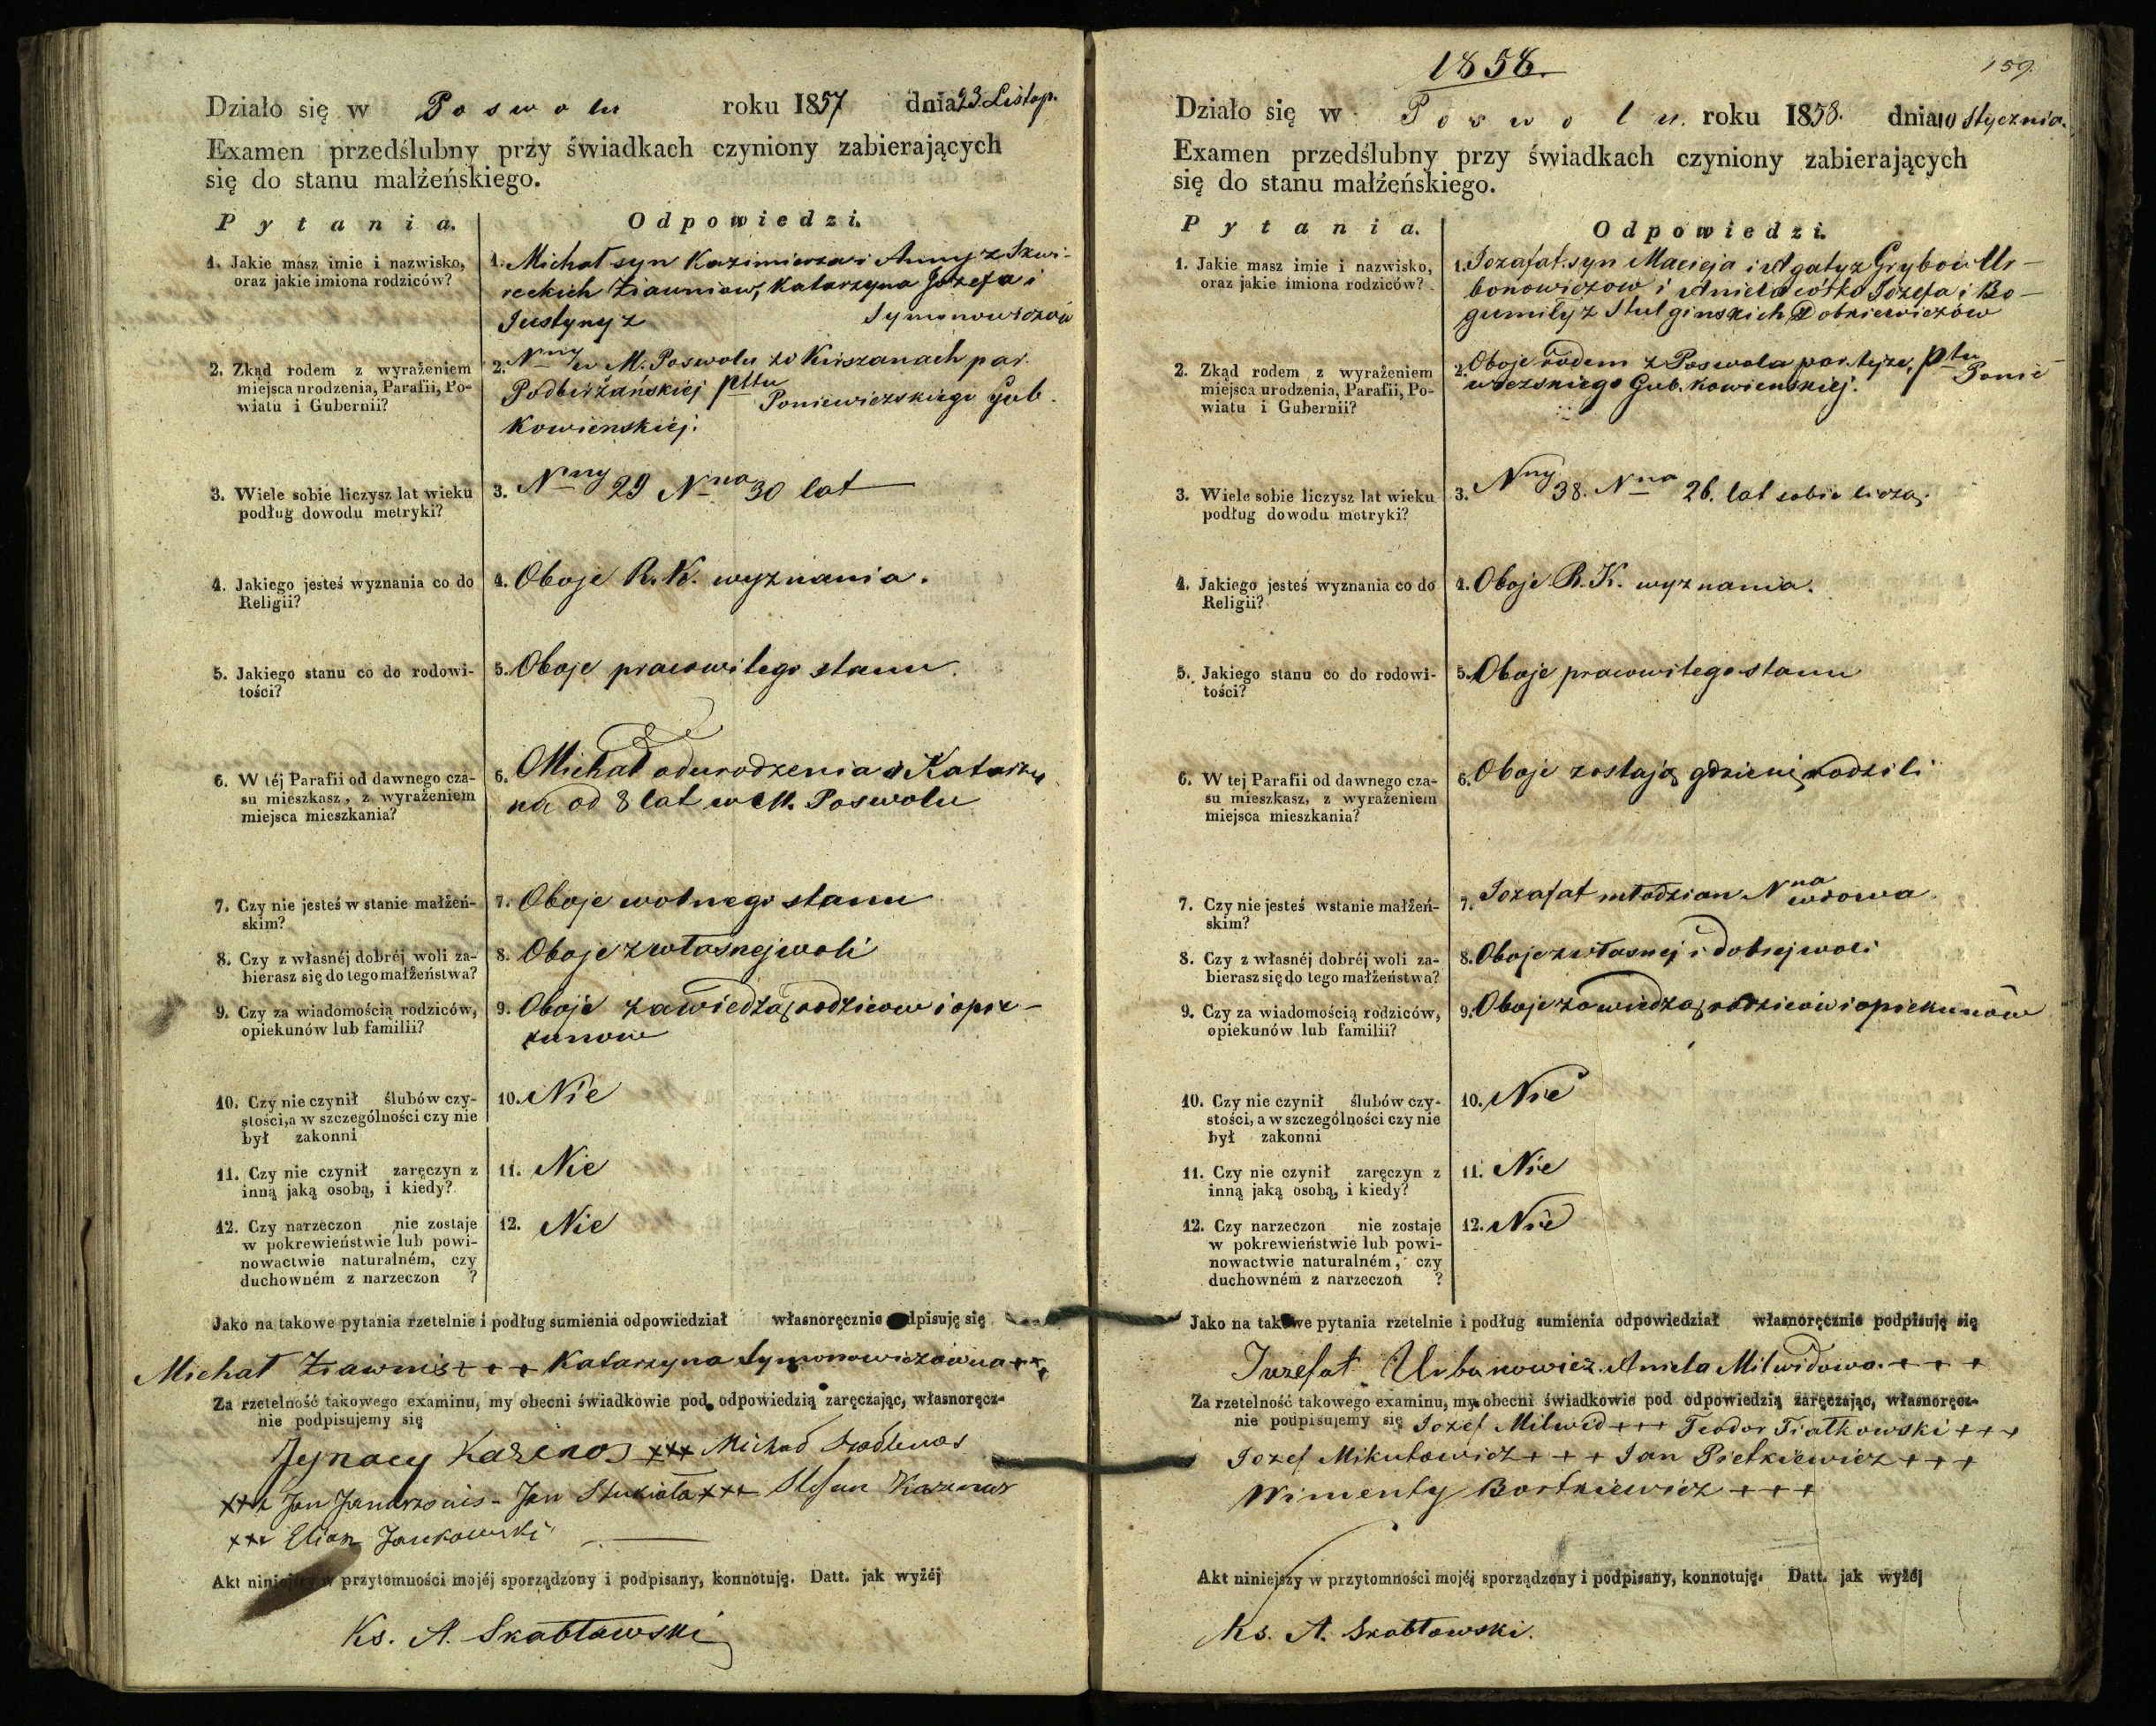 Działo się w Poswolu roku 1857 dnia 23 Listop.
Examen przedślubny przy świadkach czyniony zabierających
się do stanu małżeńskiego.
Pytania. Odpowiedzi.
1. Jakie masz imie i nazwisko,
oraz jakie imiona rodziców?
1. Michał syn Kazimierza i Anny z Szwi-
reckich Ziawniow, Katarzyna Jozefa i
Justyny z Symonowiczów
2. Zkąd rodem z wyrażeniem
miejsca urodzenia, Parafii, Po-
wiatu i Gubernii?
2. Nny w M. Poswolu w Kirszanach par.
Podbirżańskiej pttu Poniewiezskiego Gub.
Kowienskiej.
3. Wiele sobie liczysz lat wieku
podług dowodu metryki?
3. Nny 29 Nna 30 lat
4. Jakiego jesteś wyznania co do
Religii?
4. Oboje R. K. wyznania.
5. Jakiego stanu co do rodowi-
tości?
5. Oboje pracowitego stanu.
6. W téj Parafii od dawnego cza-
su mieszkasz, z wyrażeniem
miejsca mieszkania?
6. Michał od urodzenia a Katarzy
na od 8 lat w M. Poswolu
7. Czy nie jesteś w stanie małżeń-
skim?
7. Oboje wolnego stanu
8. Czy z własnéj dobréj woli za-
bierasz się do tego małżeństwa?
8. Oboje z własnej woli
9. Czy za wiadomością rodziców,
opiekunów lub familii?
9. Oboje za wiedzą rodzicow i opie-
kunow
10. Czy nie czynił ślubów czy-
stości, a w szczególności czy nie
był zakonni
10. Nie
11. Czy nie czynił zaręczyn z
inną jaką osobą, i kiedy?
11. Nie
12. Czy narzeczon nie zostaje
w pokrewieństwie lub powi-
nowactwie naturalném, czy
duchowném z narzeczon ?
12. Nie
Jako na takowe pytania rzetelnie i podług sumienia odpowiedział własnoręcznie podpisuję się
Michał Ziawnis + + + Katarzyna Symonowiczowna + + +
Za rzetelność takowego examinu, my obecni świadkowie pod odpowiedzią zaręczając, własnoręcz-
nie podpisujemy się
Jgnacy Kazenos +++ Michał
+++ Jan - Jan Stukiała +++ Stefan
+++ Elian Jankowski
Akt niniejszy w przytomności mojéj sporządzony i podpisany, konnotuję. Datt. jak wyżéj
Ks. A. Skabławski
1858.
159.
Działo się w Poswolu. roku 1858. dnia 10 Stycznia.
Examen przedślubny przy świadkach czyniony zabierających
się do stanu małżeńskiego.
Pytania. Odpowiedzi.
1. Jakie masz imie i nazwisko,
oraz jakie imiona rodziców?
1. Jozafat syn Macieja i Agaty z Grybow Ur-
bonowiczow i Aniela córka Józefa i Bo-
gumiły z Stulginskich Dobkiewiczów
2. Zkąd rodem z wyrażeniem
miejsca urodzenia, Parafii, Po-
wiatu i Gubernii?
2. Oboje rodem z Poswola par. tejże, pttu Ponie
wiezskiego Gub. Kowienskiej.
3. Wiele sobie liczysz lat wieku
podług dowodu metryki?
3. Nny 38. Nna 26. lat sobie liczą.
4. Jakiego jesteś wyznania co do
Religii?
4. Oboje R. K. wyznania.
5. Jakiego stanu co do rodowi-
tości?
5. Oboje pracowitego stanu
6. W tej Parafii od dawnego cza-
su mieszkasz, z wyrażeniem
miejsca mieszkania?
6. Oboje zostają gdzie się rodzili
7. Czy nie jesteś wstanie małżeń-
skim?
7. Jozafat młodzian Nna wdowa
8. Czy z własnéj dobréj woli za-
bierasz się do tego małżeństwa?
8. Oboje z własnej i dobrej woli
9. Czy za wiadomością rodziców,
opiekunów lub familii?
9. Oboje za wiedzą rodziców i opiekunów
10. Czy nie czynił ślubów czy-
stości, a w szczególności czy nie
był zakonni
10. Nie
11. Czy nie czynił zaręczyn z
inną jaką osobą, i kiedy?
11. Nie
12. Czy narzeczon nie zostaje
w pokrewieństwie lub powi-
nowactwie naturalném, czy
duchowném z narzeczon ?
12. Nie
Jako na takowe pytania rzetelnie i podług sumienia odpowiedział własnoręcznie podpisuję się
Jozefat Urbanowicz. Aniela Milwidowa. + + +
Za rzetelność takowego examinu, my obecni świadkowie pod odpowiedzią zaręczając, własnoręcz-
nie podpisujemy się Jozef Milwid + + + Teodor Fiałkowski + + +
Jozef Mikułowicz + + + Jan Pietkiewicz + + +
Wimenty Bortkiewicz + + +
Akt niniejszy w przytomności mojéj sporządzony i podpisany, konnotuję. Datt. jak wyżéj
Ks. A. Skabławski.